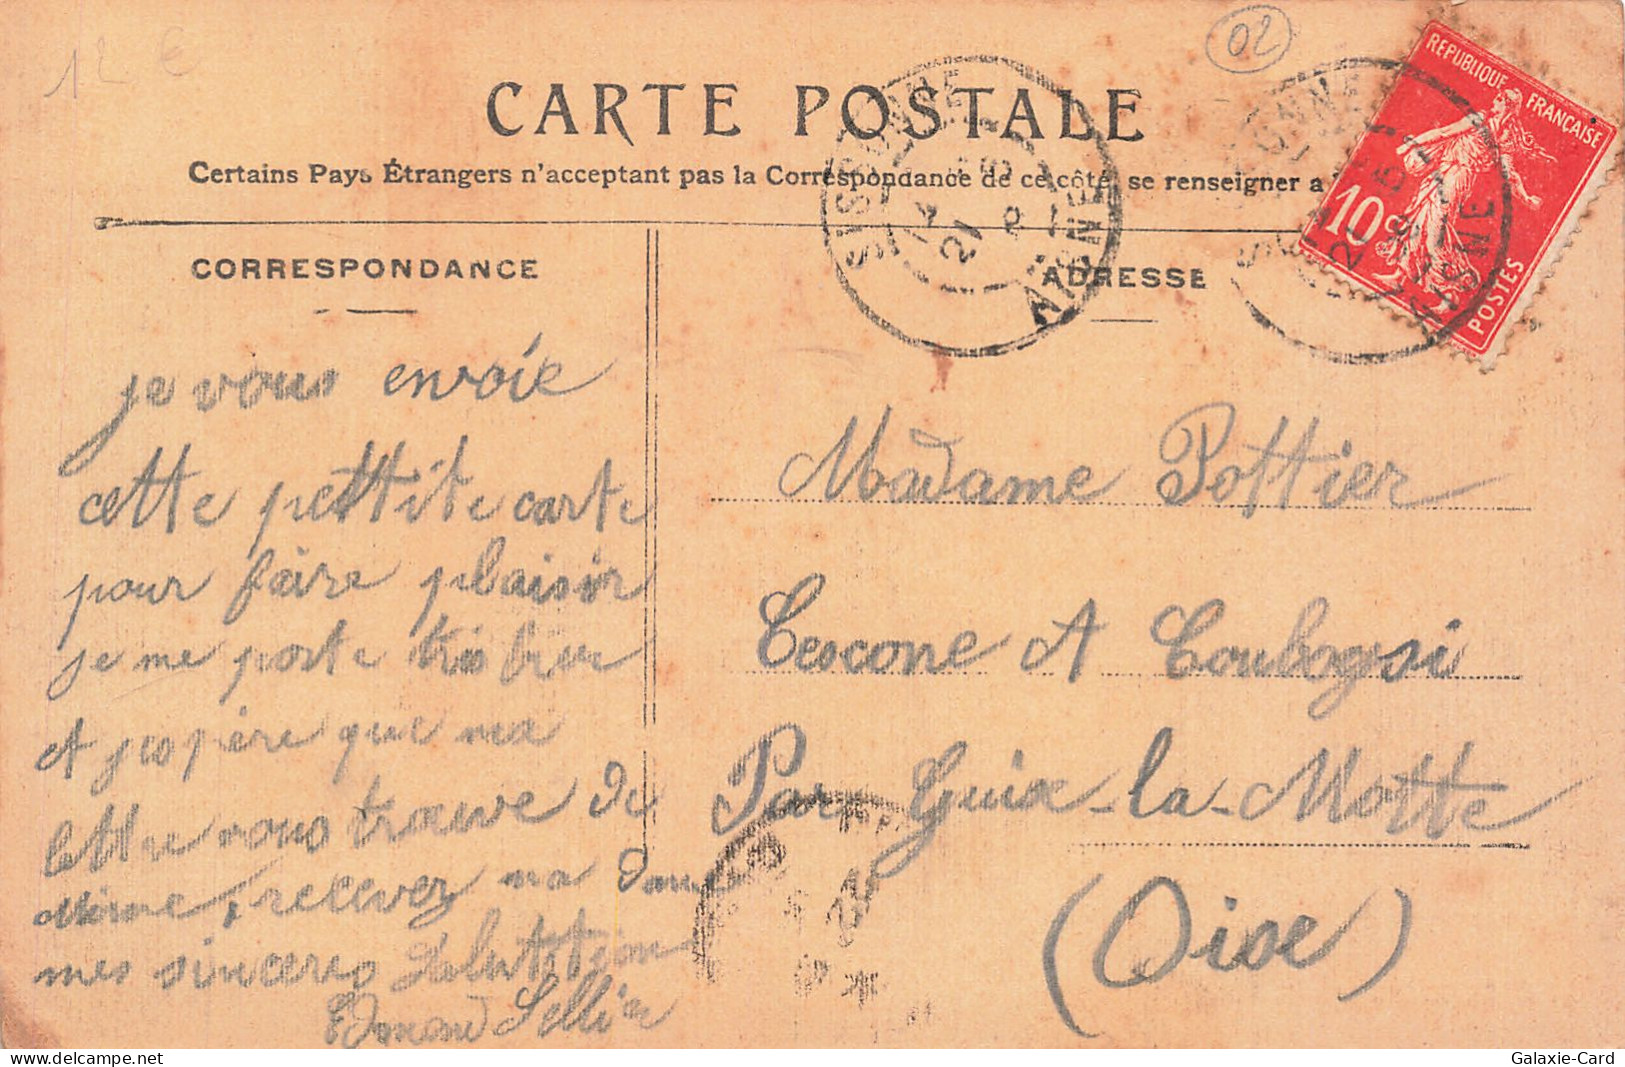 12 €
02
CARTE POSTALE
Certains Pays Étrangers n'acceptant pas la Correspondance de ce côté, se renseigner a
CORRESPONDANCE
ADRESSE
SISSONNE
AISNE
21
REPUBLIQUE FRANÇAISE
10c
POSTES
je vous envoie
cette pettite carte
pour faire plaisir
je me porte très bien
et jespère que ma
lettre vous trouve de
même, recevez ma dame
mes sinceres Salutation
Edmond Sellier
Madame Pottier
Et
Par Guix-la-Motte
(Oise)
Galaxie-Card